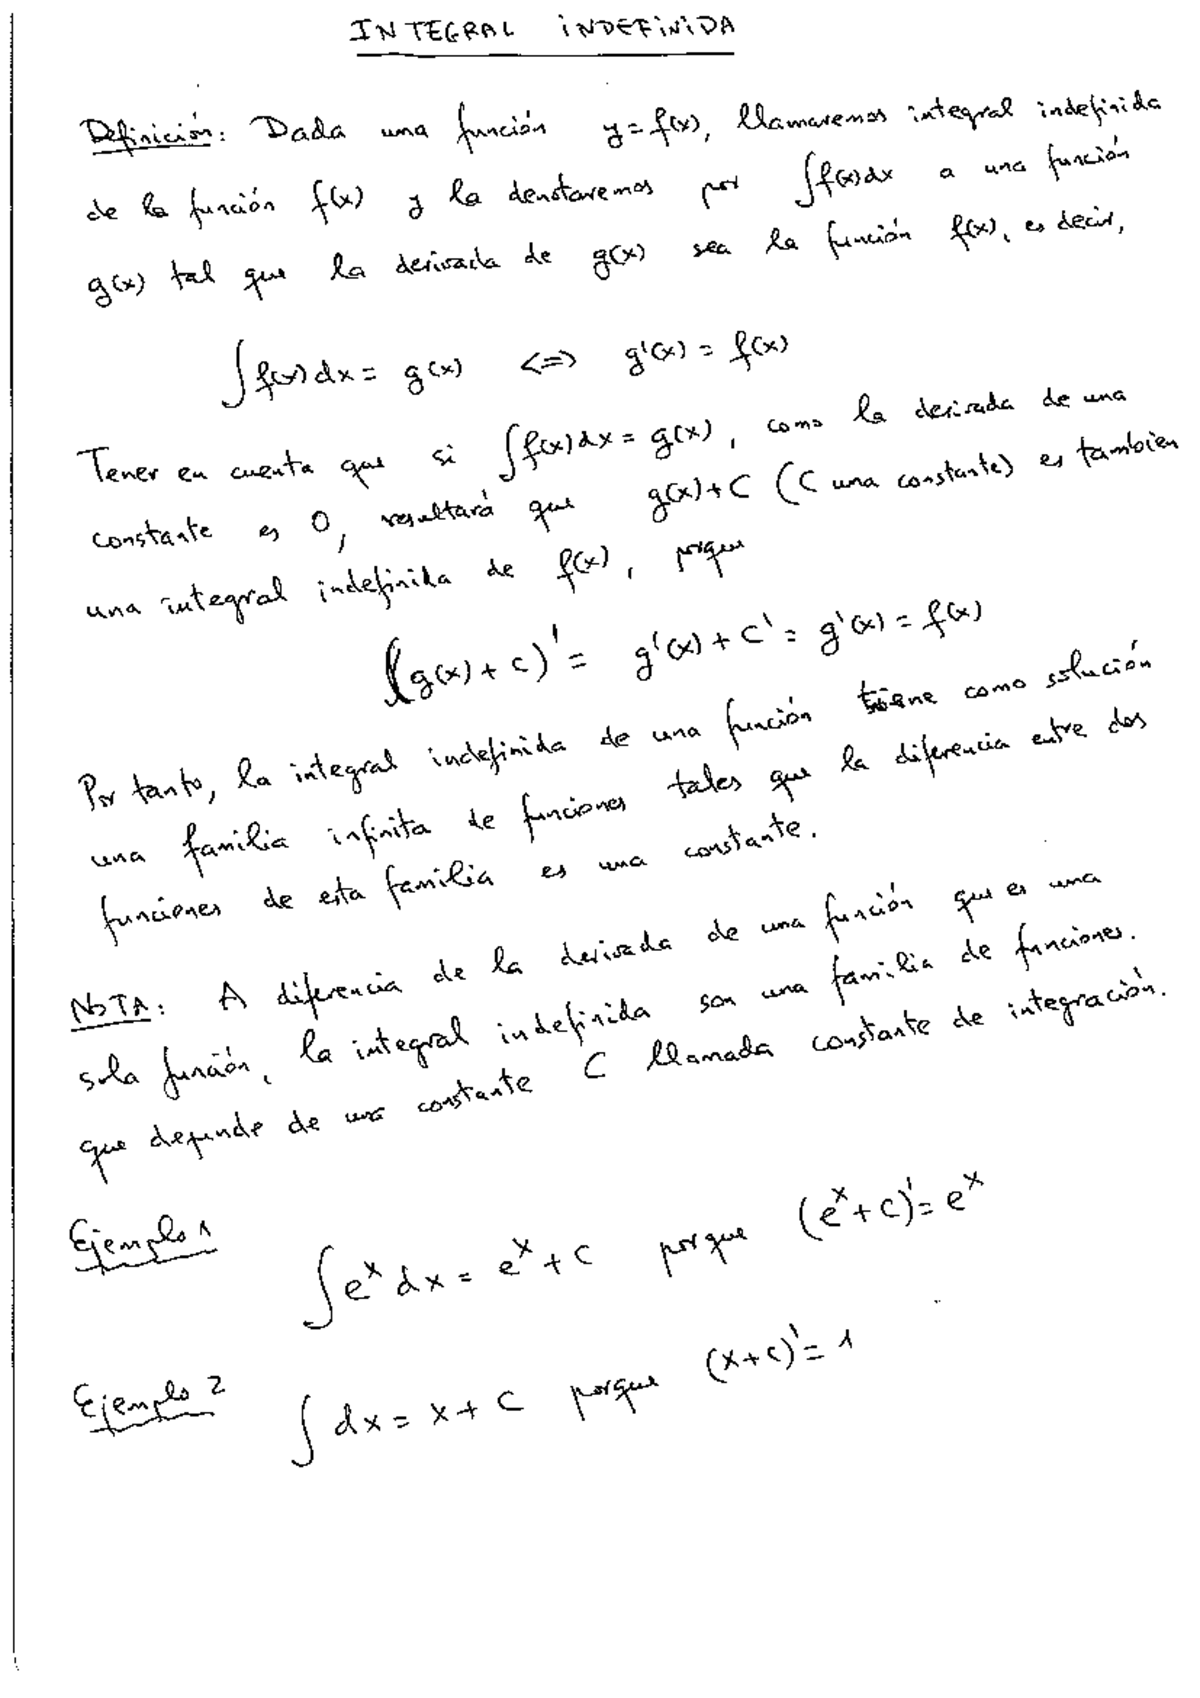 INTEGRAL INDEFINIDA
Definición: Dada una función y = f(x), llamaremos integral indefinida
de la función f(x) y la denotaremos por ∫f(x)dx a una función
g(x) tal que la derivada de g(x) sea la función f(x), es decir,
∫f(x)dx = g(x) <=> g'(x) = f(x)
Tener en cuenta que si ∫f(x)dx = g(x), como la derivada de una
constante es 0, resultará que g(x)+C (C una constante) es tambien
una integral indefinida de f(x), porque
(g(x)+c)' = g'(x)+C' = g'(x) = f(x)
Por tanto, la integral indefinida de una función tiene como solución
una familia infinita de funciones tales que la diferencia entre dos
funciones de esta familia es una constante.
NOTA: A diferencia de la derivada de una función que es una
sola función, la integral indefinida son una familia de funciones.
que depende de una constante C llamada constante de integración.
Ejemplo 1
∫e^x dx = e^x + C porque (e^x + C)' = e^x
Ejemplo 2
∫dx = x + C porque (x+c)' = 1